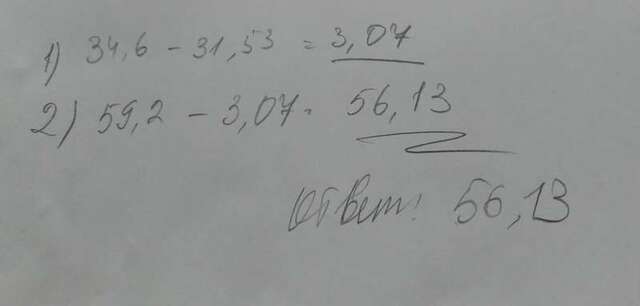 1) 34,6 - 31,53 = 3,07
2) 59,2 - 3,07 = 56,13
Ответ: 56,13